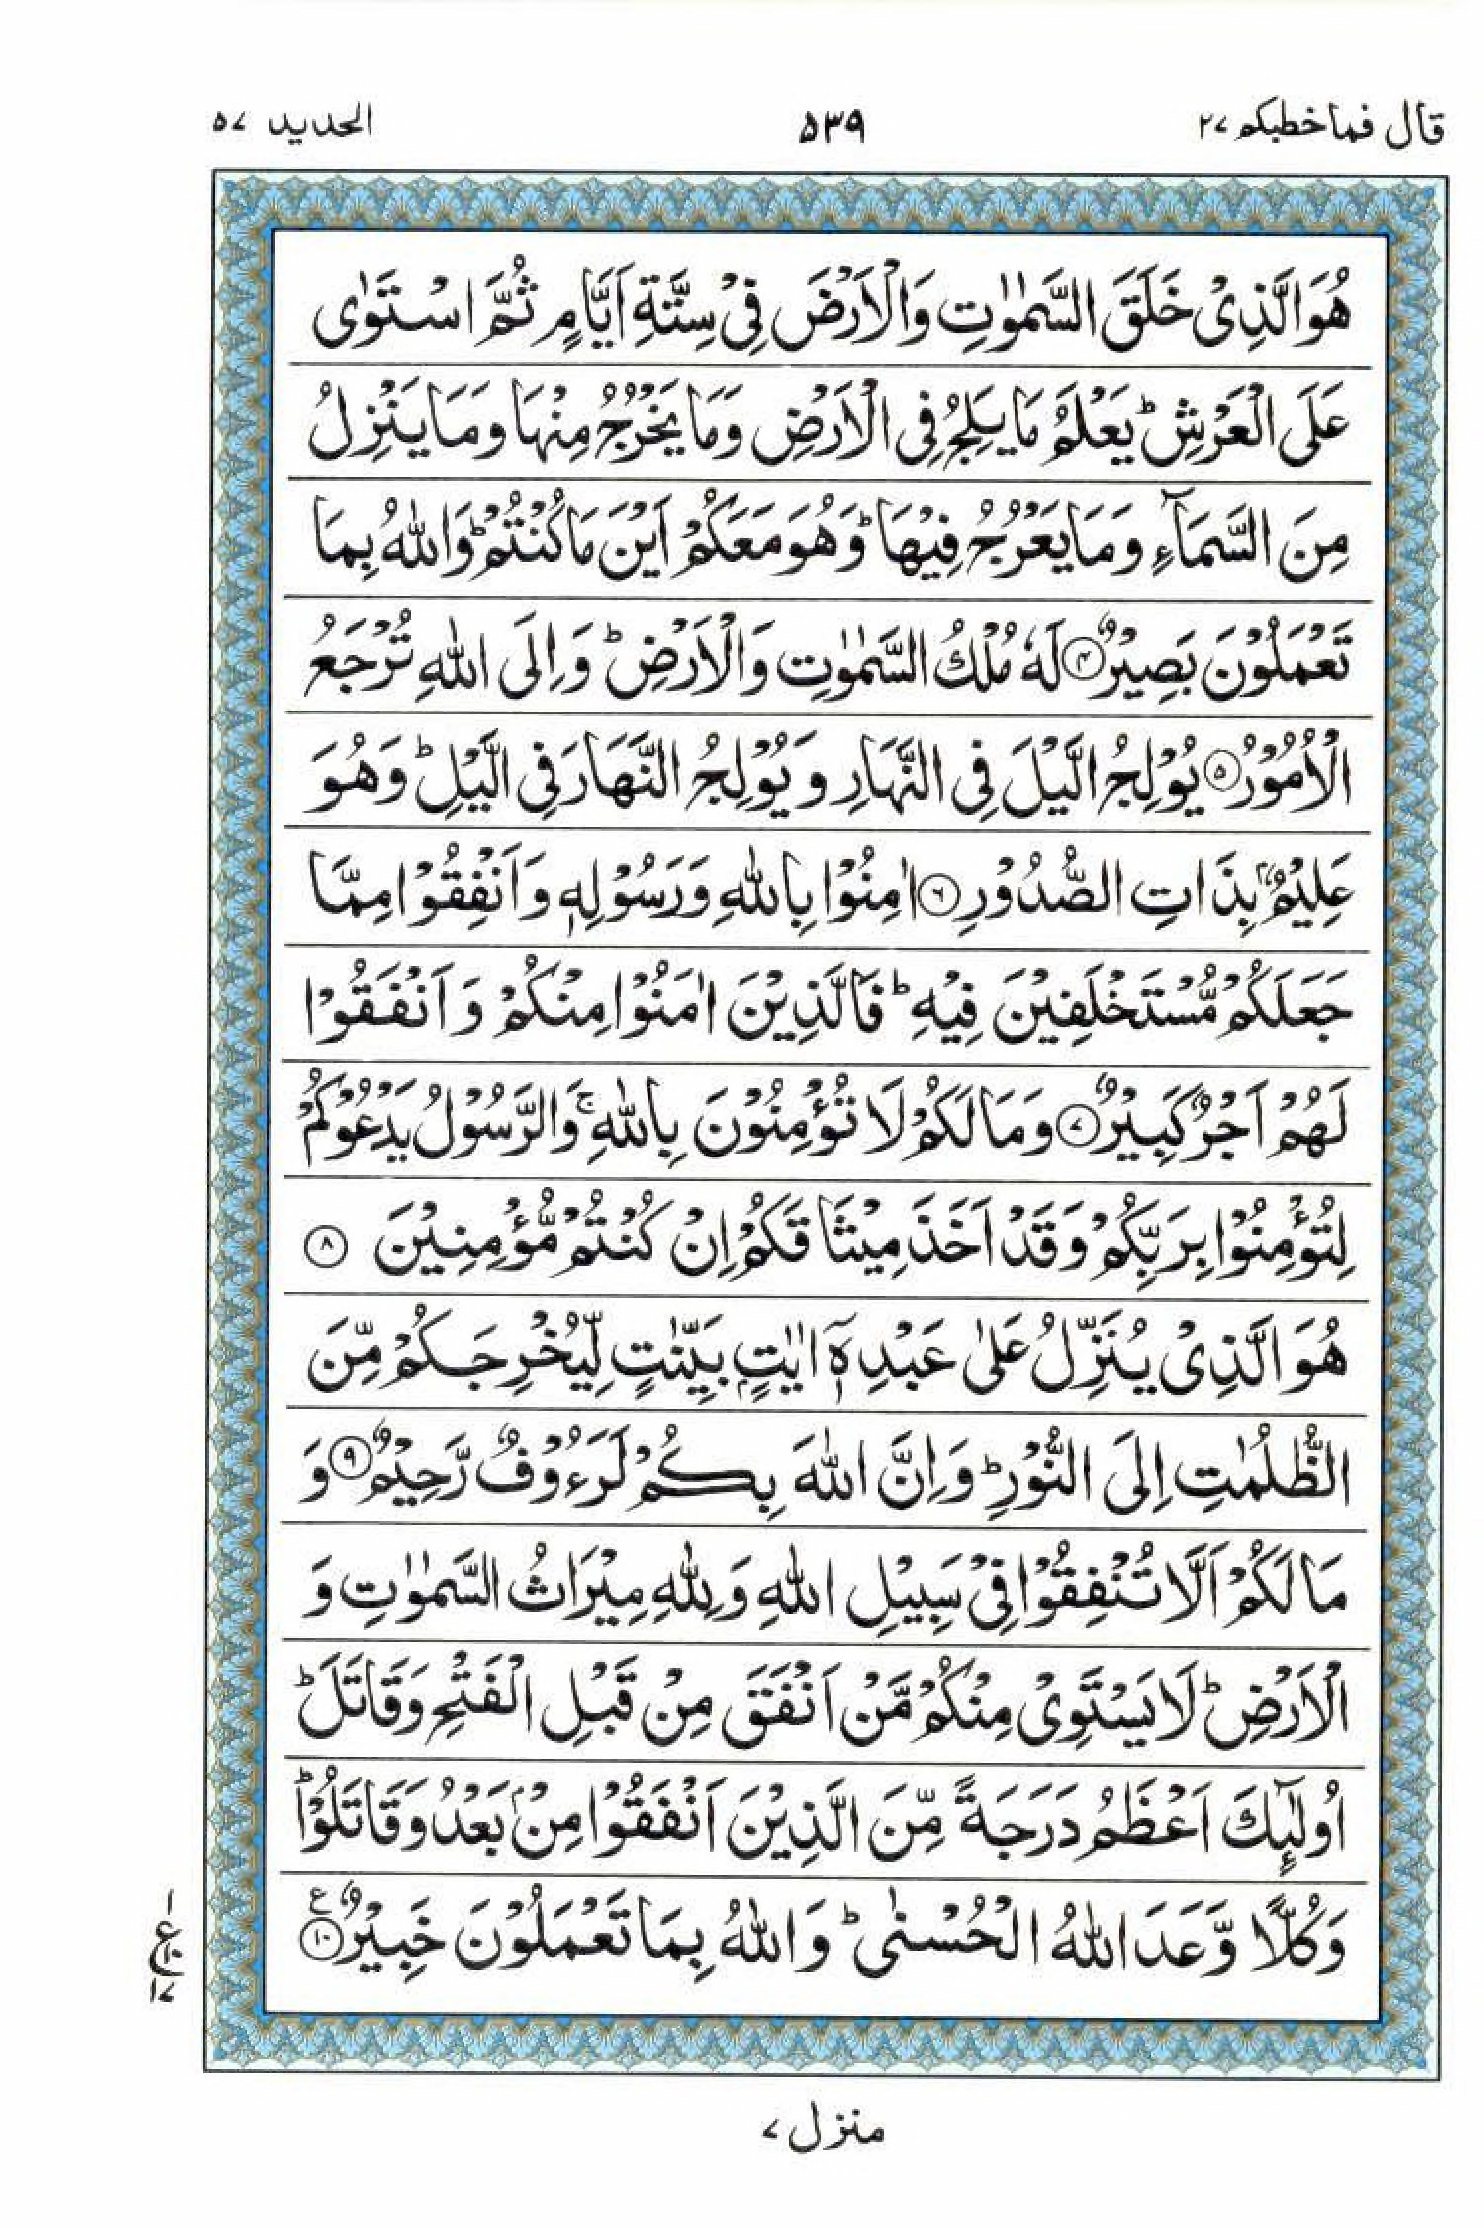 قال فماخطبكم ٢٧ ٥٣٩ الحديد ٥٧
هُوَ الَّذِیْ خَلَقَ السَّمٰوٰتِ وَالْاَرْضَ فِیْ سِتَّةِ اَیَّامٍ ثُمَّ اسْتَوٰی
عَلَی الْعَرْشِ ؕ یَعْلَمُ مَا یَلِجُ فِی الْاَرْضِ وَمَا یَخْرُجُ مِنْهَا وَمَا یَنْزِلُ
مِنَ السَّمَآءِ وَمَا یَعْرُجُ فِیْهَا ؕ وَهُوَ مَعَكُمْ اَیْنَ مَا كُنْتُمْ ؕ وَاللّٰهُ بِمَا
تَعْمَلُوْنَ بَصِیْرٌ ۟ ④ لَهٗ مُلْكُ السَّمٰوٰتِ وَالْاَرْضِ ؕ وَاِلَی اللّٰهِ تُرْجَعُ
الْاُمُوْرُ ⑤ یُوْلِجُ الَّیْلَ فِی النَّهَارِ وَیُوْلِجُ النَّهَارَ فِی الَّیْلِ ؕ وَهُوَ
عَلِیْمٌۢ بِذَاتِ الصُّدُوْرِ ⑥ اٰمِنُوْا بِاللّٰهِ وَرَسُوْلِهٖ وَاَنْفِقُوْا مِمَّا
جَعَلَكُمْ مُّسْتَخْلَفِیْنَ فِیْهِ ؕ فَالَّذِیْنَ اٰمَنُوْا مِنْكُمْ وَاَنْفَقُوْا
لَهُمْ اَجْرٌ كَبِیْرٌ ⑦ وَمَا لَكُمْ لَا تُؤْمِنُوْنَ بِاللّٰهِ ۚ وَالرَّسُوْلُ یَدْعُوْكُمْ
لِتُؤْمِنُوْا بِرَبِّكُمْ وَقَدْ اَخَذَ مِیْثَاقَكُمْ اِنْ كُنْتُمْ مُّؤْمِنِیْنَ ⑧
هُوَ الَّذِیْ یُنَزِّلُ عَلٰی عَبْدِهٖۤ اٰیٰتٍۭ بَیِّنٰتٍ لِّیُخْرِجَكُمْ مِّنَ
الظُّلُمٰتِ اِلَی النُّوْرِ ؕ وَاِنَّ اللّٰهَ بِكُمْ لَرَءُوْفٌ رَّحِیْمٌ ⑨ وَ
مَا لَكُمْ اَلَّا تُنْفِقُوْا فِیْ سَبِیْلِ اللّٰهِ وَلِلّٰهِ مِیْرَاثُ السَّمٰوٰتِ وَ
الْاَرْضِ ؕ لَا یَسْتَوِیْ مِنْكُمْ مَّنْ اَنْفَقَ مِنْ قَبْلِ الْفَتْحِ وَقَاتَلَ ؕ
اُولٰٓىِٕكَ اَعْظَمُ دَرَجَةً مِّنَ الَّذِیْنَ اَنْفَقُوْا مِنْۢ بَعْدُ وَقَاتَلُوْا ؕ
وَكُلًّا وَّعَدَ اللّٰهُ الْحُسْنٰی ؕ وَاللّٰهُ بِمَا تَعْمَلُوْنَ خَبِیْرٌ ⑩ ع
١
ع ١٠
١٧
منزل ٧